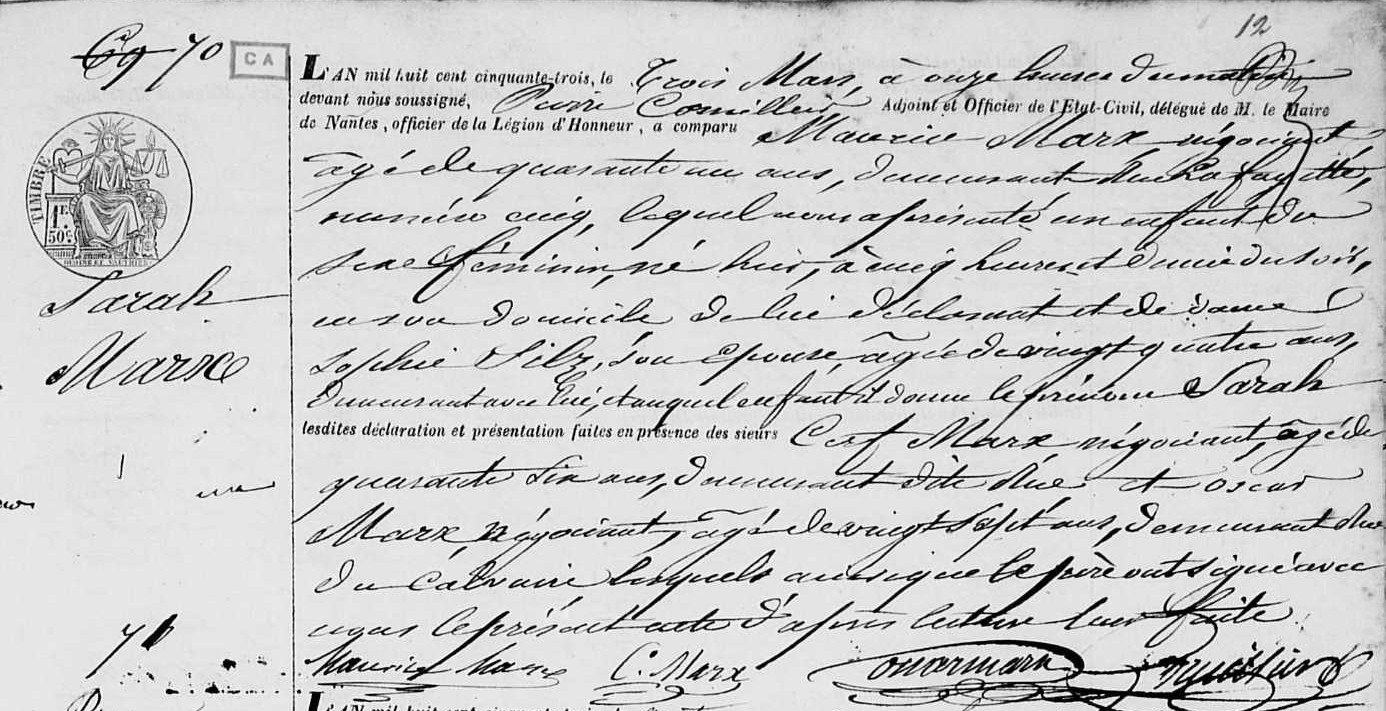 12
69 70 CA
L'AN mil huit cent cinquante-trois, le Trois Mars, à onze heures du matin
devant nous soussigné, Pierre Adjoint et Officier de l'Etat-Civil, délégué de M. le Maire
de Nantes, officier de la Légion d'Honneur, a comparu Maurice Marx, négociant
âgé de quarante un ans, demeurant rue Lafayette,
numéro cinq, lequel nous a présenté un enfant du
sexe féminin, né hier, à cinq heures et demie du soir,
en son domicile de lui déclarant et de dame
Sophie Silz, son épouse, âgée de vingt quatre ans,
demeurant avec lui, et auquel enfant il donne le prénom Sarah
lesdites déclaration et présentation faites en présence des sieurs Cerf Marx, négociant, âgé de
quarante six ans, demeurant dite rue et oscar
Marx, négociant, âgé de vingt sept ans, demeurant rue
du Calvaire, lesquels ainsi que le père ont signé avec
nous le présent acte d'après lecture leur faite
Maurice Marx C. Marx oscar marx
TIMBRE
1F.
50c.
Sarah
Marx
71
L'AN mil huit cent